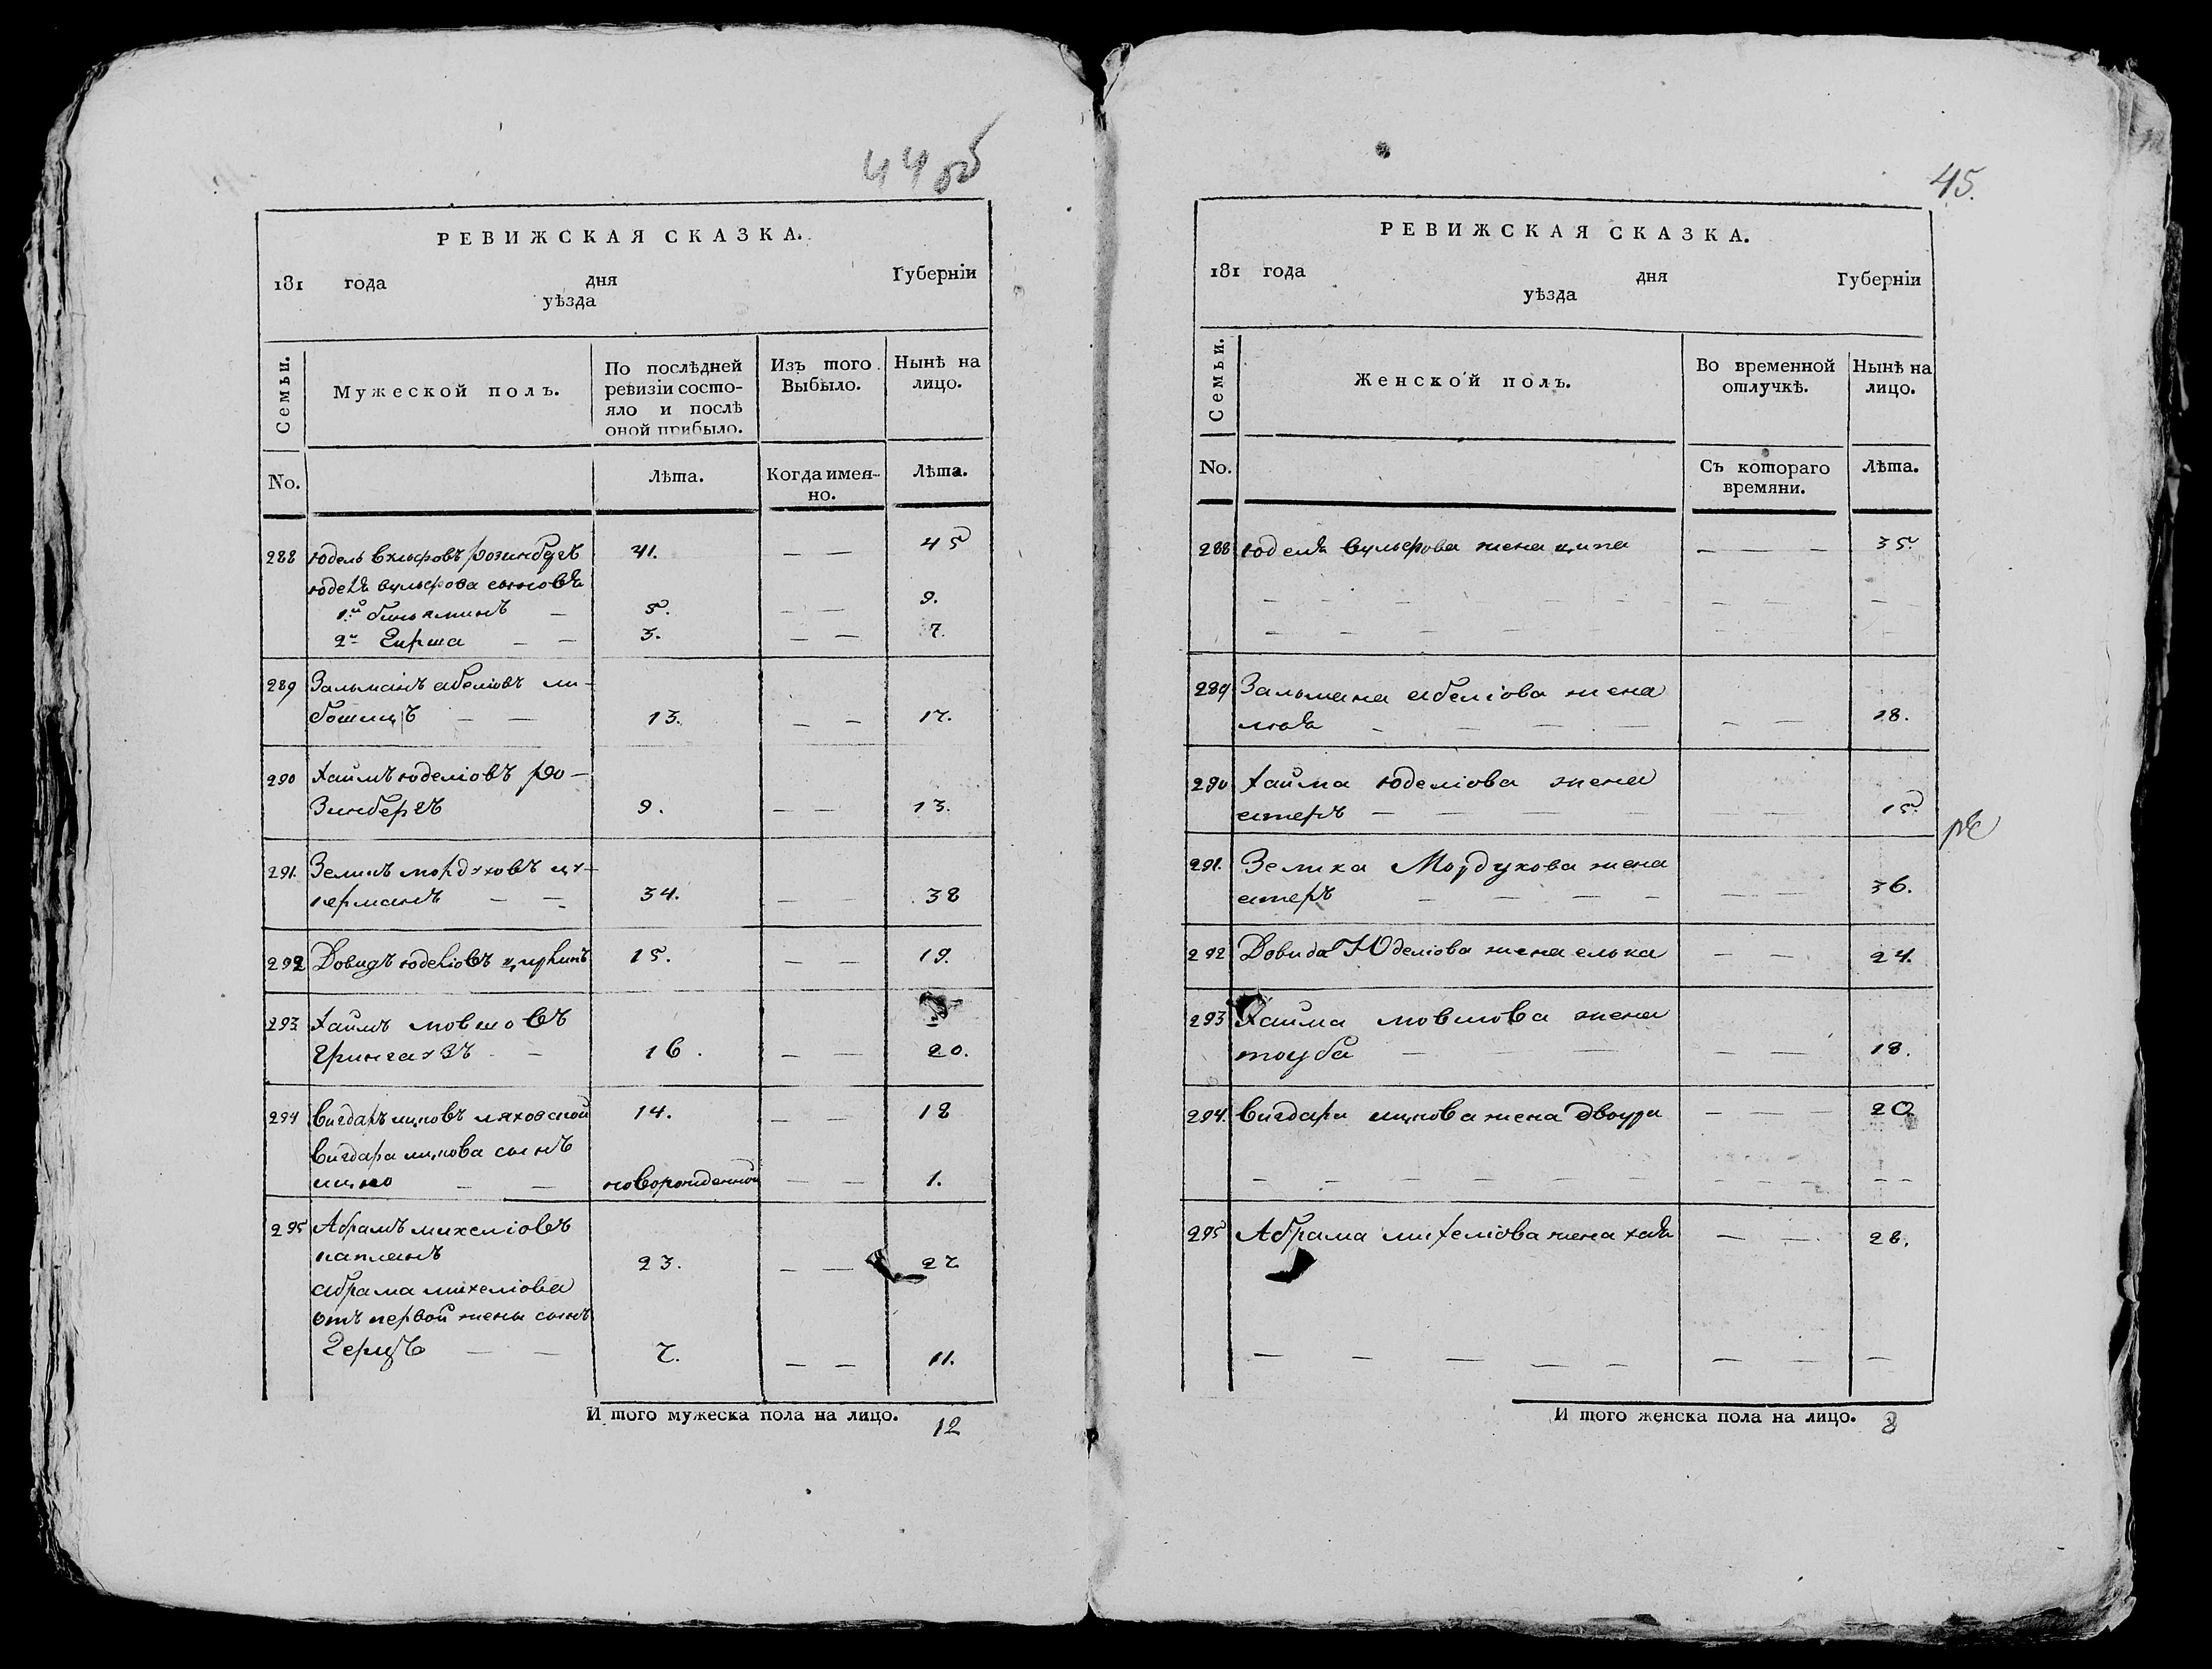 44 об
РЕВИЖСКАЯ СКАЗКА.
181 года дня Губерніи
уѣзда
Семьи.
Мужеской полъ.
По послѣдней ревизіи состо-
яло и послѣ
оной прибыло.
Изъ того Выбыло.
Нынѣ на лицо.
No.
Лѣта.
Когда имен-
но.
Лѣта.
288 Юдель Вульфовъ 41. — — 45
Юделя Вульфова сыновья
1й биньяминъ — 5. — — 9.
2й Гирша — — 3. — — 7.
289 Зальманъ абеліовъ ли-
бошицъ — — 13. — — 17.
290 Хаимъ юделіовъ ро-
зинбергъ 9. — — 13.
291. Зеликъ мордуховъ цу-
керманъ — — 34. — — 38
292 Довидъ юделіовъ циркинъ 15. — — 19.
293 Хаимъ мовшовъ
Грингаузъ — 16. — — 20.
294 Вигдаръ ицковъ ляховской 14. — — 18
Вигдара ицкова сынъ
ицко — — новорожденной — — 1.
295 Абрамъ михеліовъ
капланъ 23. — — 27
абрама михеліова
отъ первой жены сынъ
Герцъ — — 7. — — 11.
И того мужеска пола на лицо. 12
45.
РЕВИЖСКАЯ СКАЗКА.
181 года дня Губерніи
уѣзда
Семьи.
Женской полъ.
Во временной отлучкѣ.
Нынѣ на лицо.
No.
Съ котораго времяни.
Лѣта.
288 Юделя Вульфова жена ципа — — — 35.
289 Зальмана абеліова жена
— — — — — 18.
290 Хаима юделіова жена
естеръ — — — — — 15
291. Зелика Мордухова жена
естеръ — — — — — — 36.
292 Довида Юделіова жена елька — — 24.
293 Хаима мовшова жена
тоуба — — — — — 18.
294. Вигдара ицкова жена двоура — — — 20
295 Абрама михеліова жена хая — — 28.
И того женска пола на лицо. 8